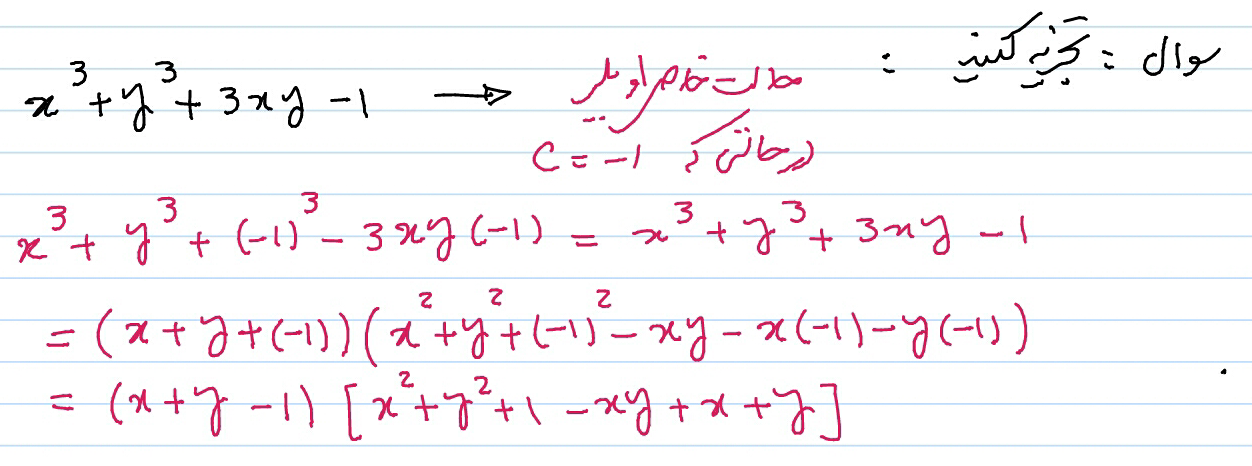 سوال : تجزیه کنید :
x³ + y³ + 3xy - 1 → حالت خاص اویلر
درحالتی که c = -1
x³ + y³ + (-1)³ - 3xy(-1) = x³ + y³ + 3xy - 1
= (x + y + (-1))(x² + y² + (-1)² - xy - x(-1) - y(-1))
= (x + y - 1)[x² + y² + 1 - xy + x + y]